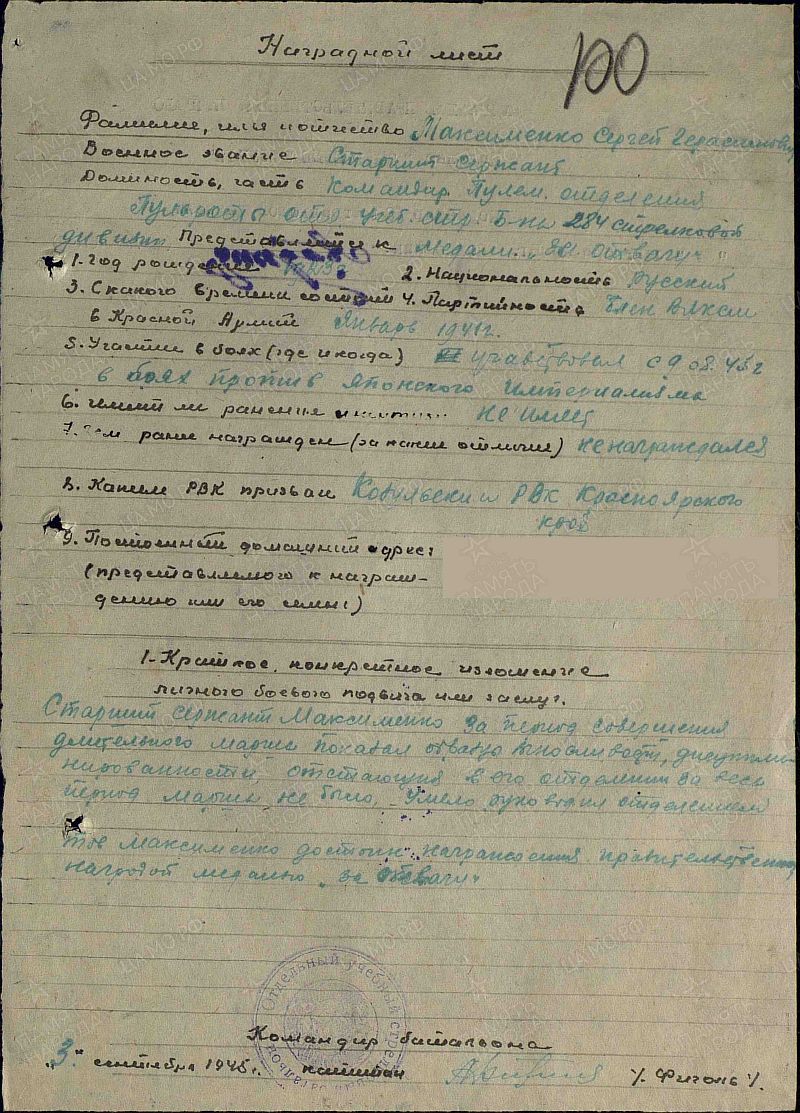 Наградной лист
100
Фамилие, имя и отчество Максименко Сергей Герасимович
Военное звание Старший сержант
Должность, часть Командир Пулем. отделения
Пульроты отд. учеб. стр. Б-на 284 стрелковой
дивизии Представляется к медали „За отвагу"
1. Год рождения 2. Национальность Русский
3. С какого времени состоит 4. Партийность Член ВЛКСМ
в Красной Армии Январь 1941 г.
5. Участие в боях (где и когда) участвовал с 9.08.45 г
в боях против Японского Империализма
6. Имеет ли ранения и контузии Не имеет
7. Чем ранее награжден (за какие отличия) не награждался
8. Каким РВК призван РВК Красноярского
края
9. Постоянный домашний адрес:
(представляемого к награж-
дению или его семьи)
1. Краткое, конкретное изложение
личного боевого подвига или заслуг.
Старший сержант Максименко За период совершения
длительного марша показал образцы выносливости, дисципли-
нированности, отстающих в его отделении за весь
период марша не было, умело руководил отделением
тов Максименко достоин награждения правительственной
наградой медалью „за отвагу"
Отдельный учебный стрелковый батальон
Командир батальона
„3." сентября 1945 г. капитан /. Фиголь /.
ЦАМО.РФ
ПАМЯТЬ
НАРОДА